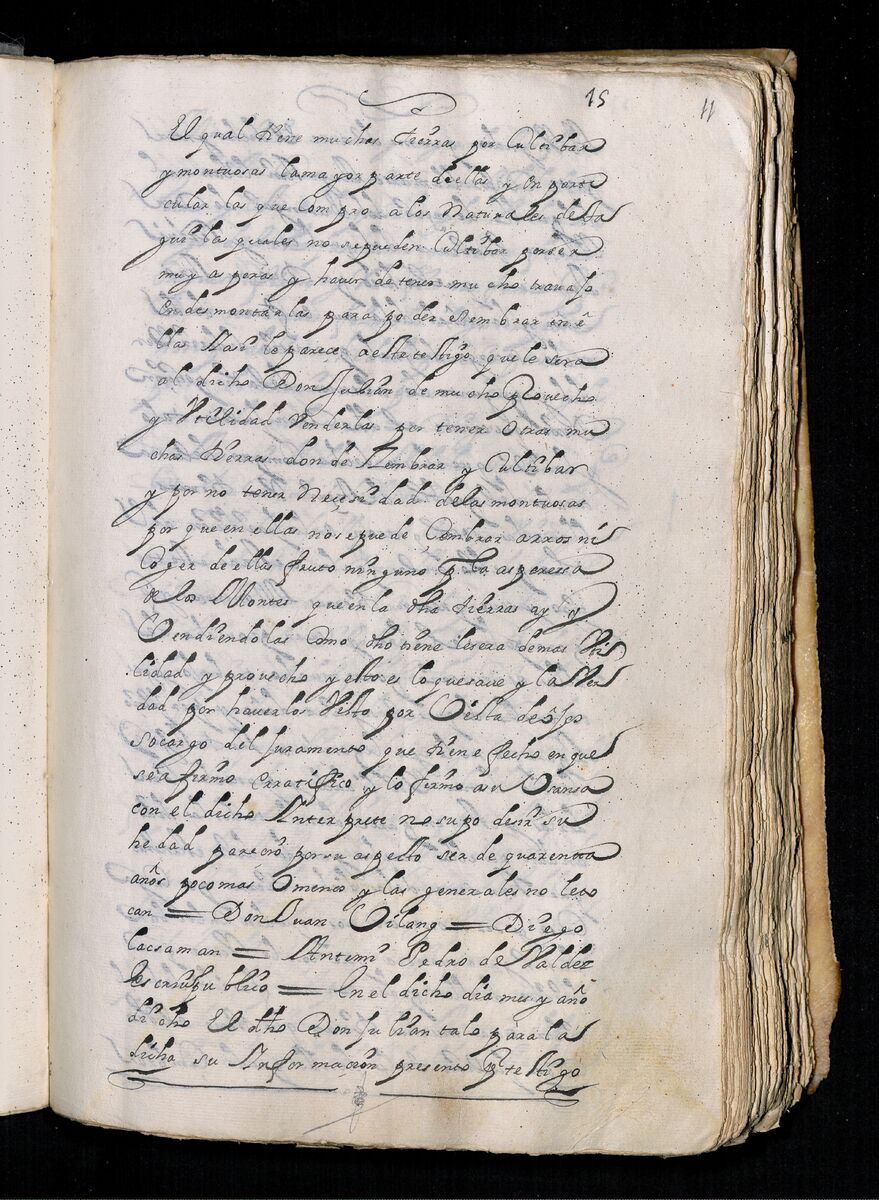 15
11
El qual tiene muchas tierras por Cultibar
y montuosas la mayor parte de ellas y en parti
cular las que Compro a los Naturales de Sa
gui las quales no sepueden Cultibar por ser
muy asperas y haver de tener mucho travajo
en desmontarlas para poder sembrar en e
llas y asi le parece a este testigo que le sera
al dicho Don Julian de mucho Provecho
y Vtilidad Venderlas por tener otras mu
chas tierras donde sembrar y Cultibar
y por no tener Neçesidad de las montuosas
por que en ellas no se puede Sembrar arros ni
Coger de ellas fruto ninguno p. la asperessa
de los Montes que en la dha tierras ay y
Vendiendolas Como dho tiene le sera de mas Vti
lidad y provecho y esto es lo que save y la Ver
dad por haverlos Visto por Vista de ojos
so cargo del Juramento que tiene fecho en que
se afirmo erratifico y lo firmo a su Vsansa
con el dicho Ynterprete no supo desir su
hedad parecio por su aspecto ser de quarenta
años poco mas O menos y las generales no le to
can = Don Juan Oilang = Diego
lacsaman = Antemi Pedro de Valdes
escriu.º publico = En el dicho dia mes y año
dicho El dho Don Julian talo para la
dicha su Ynformacion presento P testigo